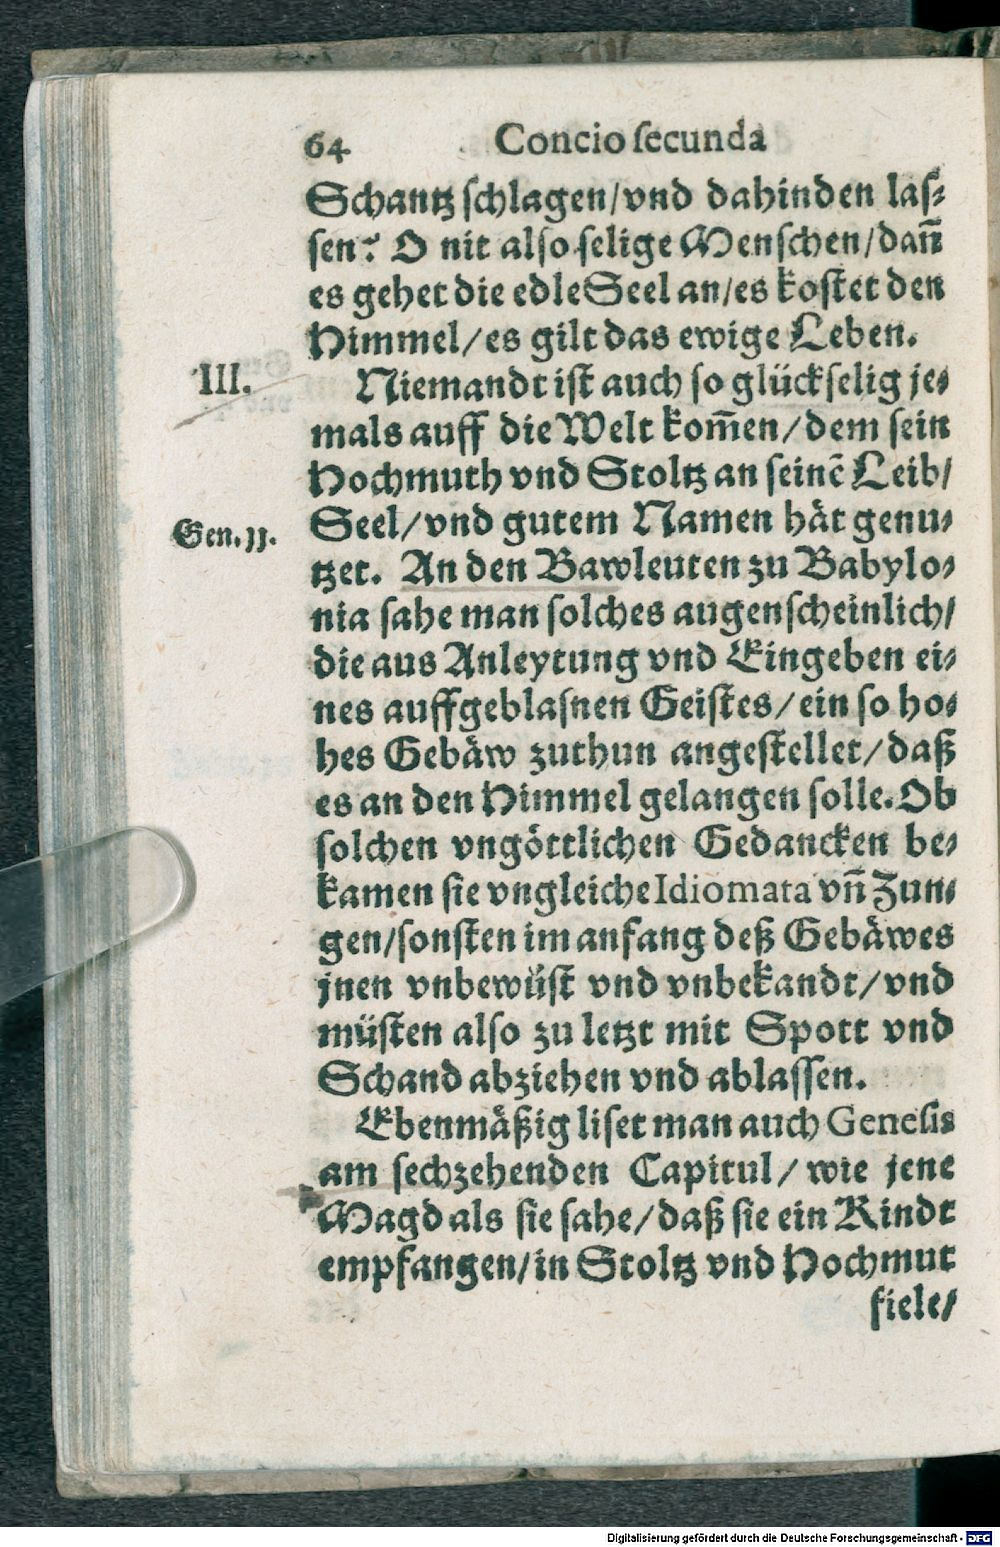 64 Concio ſecunda
Schantz ſchlagen/vnd dahinden laſ⸗
ſen? O nit alſo ſelige Menſchen/dañ
es gehet die edle Seel an/es koſtet den
Himmel/es gilt das ewige Leben.
III.
Niemandt iſt auch ſo glückſelig je⸗
mals auff die Welt kom̃en/dem ſein
Hochmuth vnd Stoltz an ſeinẽ Leib/
Seel/vnd gutem Namen hät genu⸗
Gen. 11.
tzet. An den Bawleuten zu Babylo⸗
nia ſahe man ſolches augenſcheinlich/
die aus Anleytung vnd Eingeben ei⸗
nes auffgeblaſnen Geiſtes/ein ſo ho⸗
hes Gebäw zuthun angeſtellet/daß
es an den Himmel gelangen ſolle. Ob
ſolchen vngöttlichen Gedancken be⸗
kamen ſie vngleiche Idiomata vñ Zun⸗
gen/ſonſten im anfang deß Gebäwes
jnen vnbewüſt vnd vnbekandt/vnd
müſten alſo zu letzt mit Spott vnd
Schand abziehen vnd ablaſſen.
Ebenmäßig liſet man auch Geneſis
am ſechzehenden Capitul/wie jene
Magd als ſie ſahe/daß ſie ein Kindt
empfangen/in Stoltz vnd Hochmut
fiele/
Digitalisierung gefördert durch die Deutsche Forschungsgemeinschaft - DFG